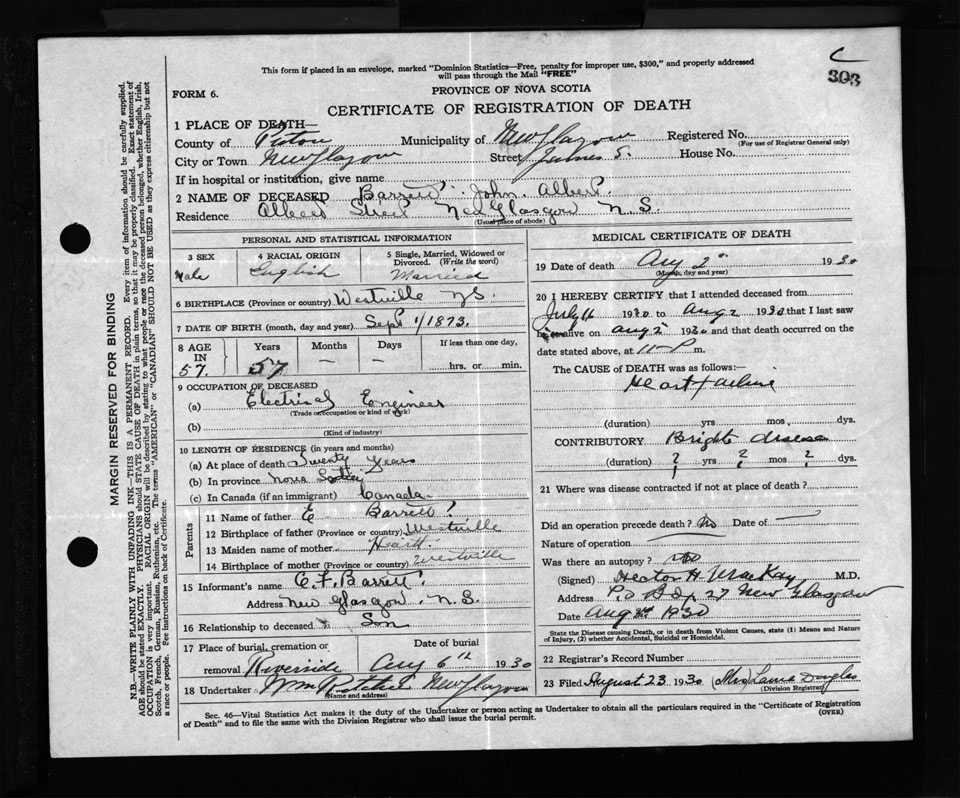 C
303
This form if placed in an envelope, marked "Dominion Statistics—Free, penalty for improper use, $300," and properly addressed
will pass through the Mail "FREE"
FORM 6.
PROVINCE OF NOVA SCOTIA
CERTIFICATE OF REGISTRATION OF DEATH
1 PLACE OF DEATH—
County of Pictou Municipality of New Glasgow Registered No.
(For use of Registrar General only)
City or Town New Glasgow Street James S. House No.
If in hospital or institution, give name
2 NAME OF DECEASED Barrett John Albert.
Residence Albert Street New Glasgow N.S.
(Usual place of abode)
PERSONAL AND STATISTICAL INFORMATION
3 SEX 4 RACIAL ORIGIN 5 Single, Married, Widowed or Divorced. (Write the word)
Male English Married
6 BIRTHPLACE (Province or country) Westville N.S.
7 DATE OF BIRTH (month, day and year) Sept 1/1873.
8 AGE IN Years Months Days If less than one day,
57. 57 — — hrs. or min.
9 OCCUPATION OF DECEASED
(a) Electrical Engineer
(Trade or occupation or kind of work)
(b)
(Kind of industry)
10 LENGTH OF RESIDENCE (in years and months)
(a) At place of death Twenty Years
(b) In province Nova Scotia
(c) In Canada (if an immigrant) Canada
Parents
11 Name of father E Barrett
12 Birthplace of father (Province or country) Westville
13 Maiden name of mother Hart
14 Birthplace of mother (Province or country) Westville
15 Informant's name C. F. Barrett
Address New Glasgow N.S.
16 Relationship to deceased Son
17 Place of burial, cremation or removal Date of burial
Riverside Aug 6th 1930
18 Undertaker Wm New Glasgow
(Name and address)
MEDICAL CERTIFICATE OF DEATH
19 Date of death Aug 2 1930
(Month, day and year)
20 I HEREBY CERTIFY that I attended deceased from
July 16 1930 to Aug 2 1930 that I last saw
alive on Aug 2 1930 and that death occurred on the
date stated above, at 11-P m.
The CAUSE of DEATH was as follows:—
Heart failure
(duration) yrs mos. dys.
CONTRIBUTORY Brights disease
(duration) ? yrs ? mos ? dys.
21 Where was disease contracted if not at place of death?
Did an operation precede death? No Date of —
Nature of operation
Was there an autopsy? No
(Signed) Hector H. MacKay M.D.
Address P.O. Box 27 New Glasgow
Date Aug 3rd 1930
State the Disease causing Death, or in death from Violent Causes, state (1) Means and Nature of Injury, (2) whether Accidental, Suicidal or Homicidal.
22 Registrar's Record Number
23 Filed August 23 1930 (Mrs) Laura Douglas
(Division Registrar)
Sec. 46—Vital Statistics Act makes it the duty of the Undertaker or person acting as Undertaker to obtain all the particulars required in the "Certificate of Registration
of Death" and to file the same with the Division Registrar who shall issue the burial permit.
(OVER)
MARGIN RESERVED FOR BINDING
N.B.—WRITE PLAINLY WITH UNFADING INK—THIS IS A PERMANENT RECORD. Every item of information should be carefully supplied.
AGE should be stated EXACTLY. PHYSICIANS should STATE CAUSE OF DEATH in plain terms, so that it may be properly classified. Exact statement of
OCCUPATION is very important. RACIAL ORIGIN will be described by stating to what people or race the deceased person belonged, whether English, Irish,
Scotch, French, German, Russian, Ruthenian, etc. The terms "AMERICAN" or "CANADIAN" SHOULD NOT BE USED as they express citizenship but not
a race or people. See instructions on back of Certificate.